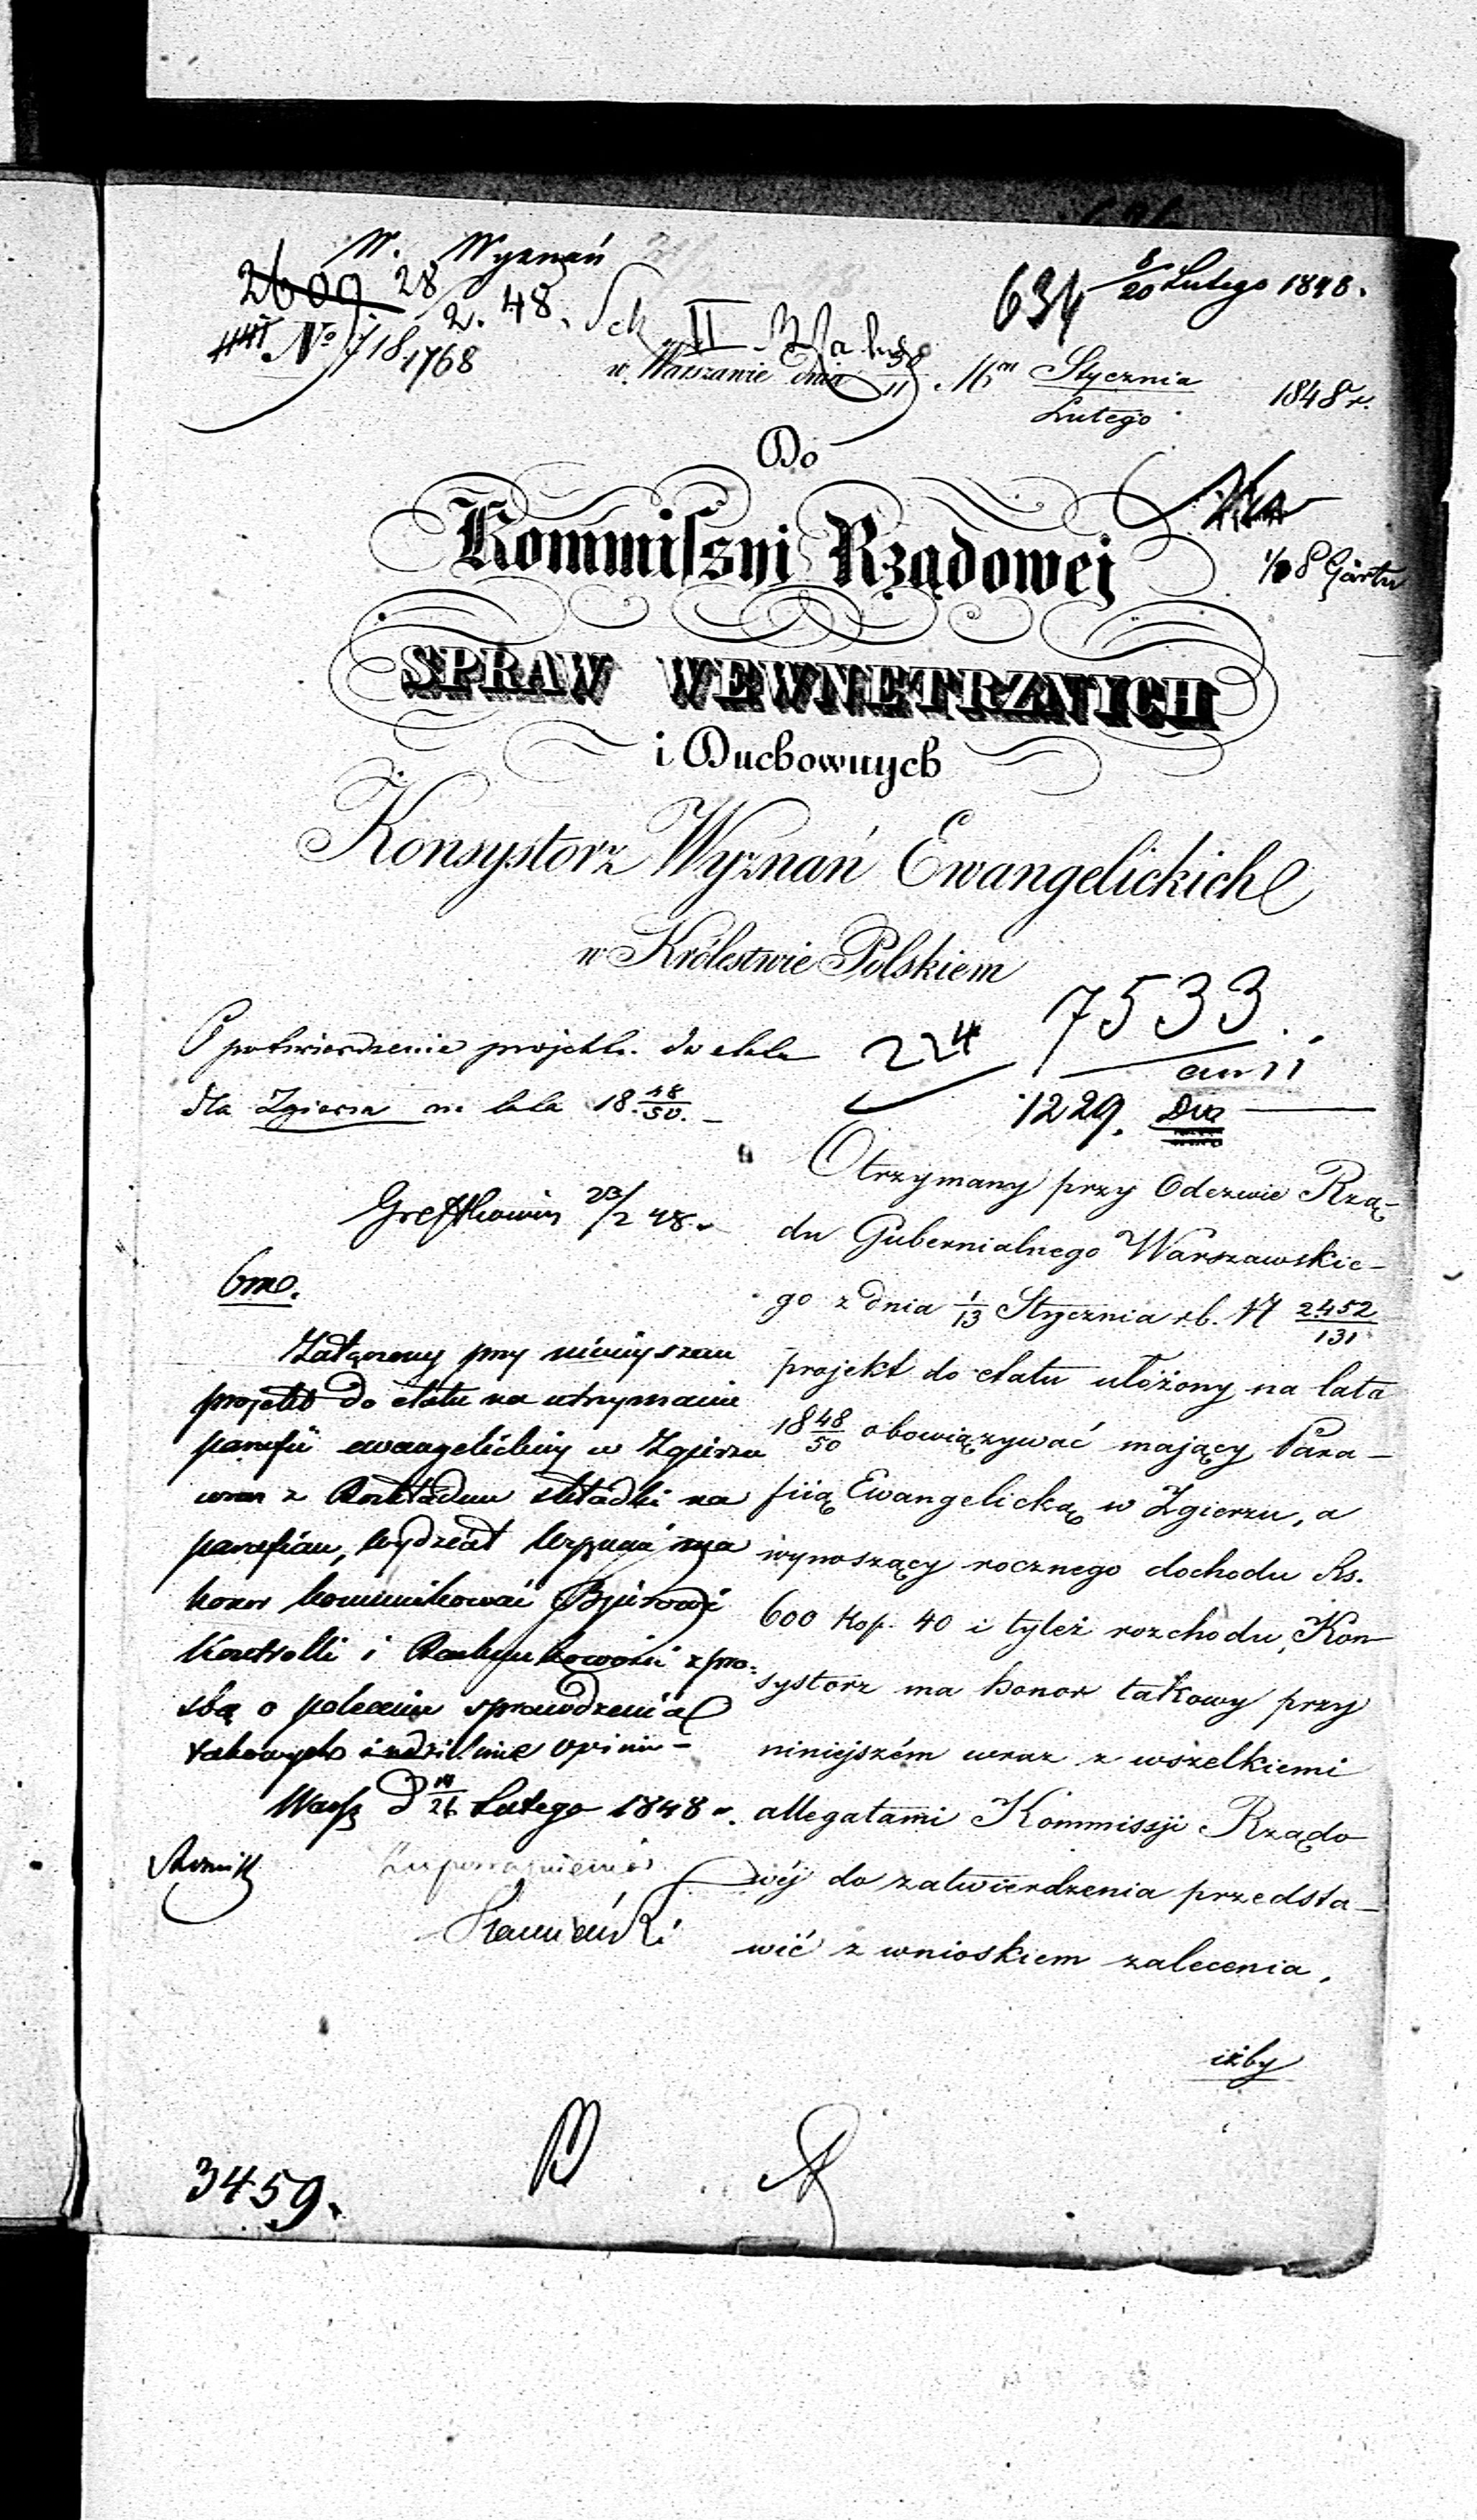 W. Wyznań
2609 28/2. 48. Sek. II
634 8/20 Lutego 1848.
No 718/1768
w Warszawie dnia 30/11 Mca Stycznia/Lutego 1848 r.
Do
Kommissyi Rządowej
SPRAW WEWNĘTRZNYCH
i Duchownych
Konsystorz Wyznań Ewangelickich
w Królestwie Polskiem
7533.
224
1229.
O potwierdzenie projektu do etatu
dla Zgierza na lata 18 48/50. –
23/2 48.
Otrzymany przy Odezwie Rzą-
du Gubernialnego Warszawskie-
go z dnia 1/13 Stycznia r.b. N 2452/131
projekt do etatu ułożony na lata
18 48/50 obowiązywać mający Para-
fiią Ewangelicką w Zgierzu, a
wynoszący rocznego dochodu Rs.
600 kop. 40 i tyleż rozchodu, Kon-
systorz ma honor takowy przy
niniejszém wraz z wszelkiemi
allegatami Kommissji Rządo
wéj do zatwierdzenia przedsta-
wić z wnioskiem zalecenia,
iżby
Załączony przy niniejszem
projekt do etatu na utrzymanie
parafii ewangelickiej w Zgierzu
wraz z Rozkładem składki na
parafian, Wydział Wyznań ma
honor kommunikować Bjurowi
Kontrolli i Rachunkowości z pro-
śbą o polecenie sprawdzenia
takowych i udzielenie opinii –
Warsz d 14/26 Lutego 1848 r.
3459.